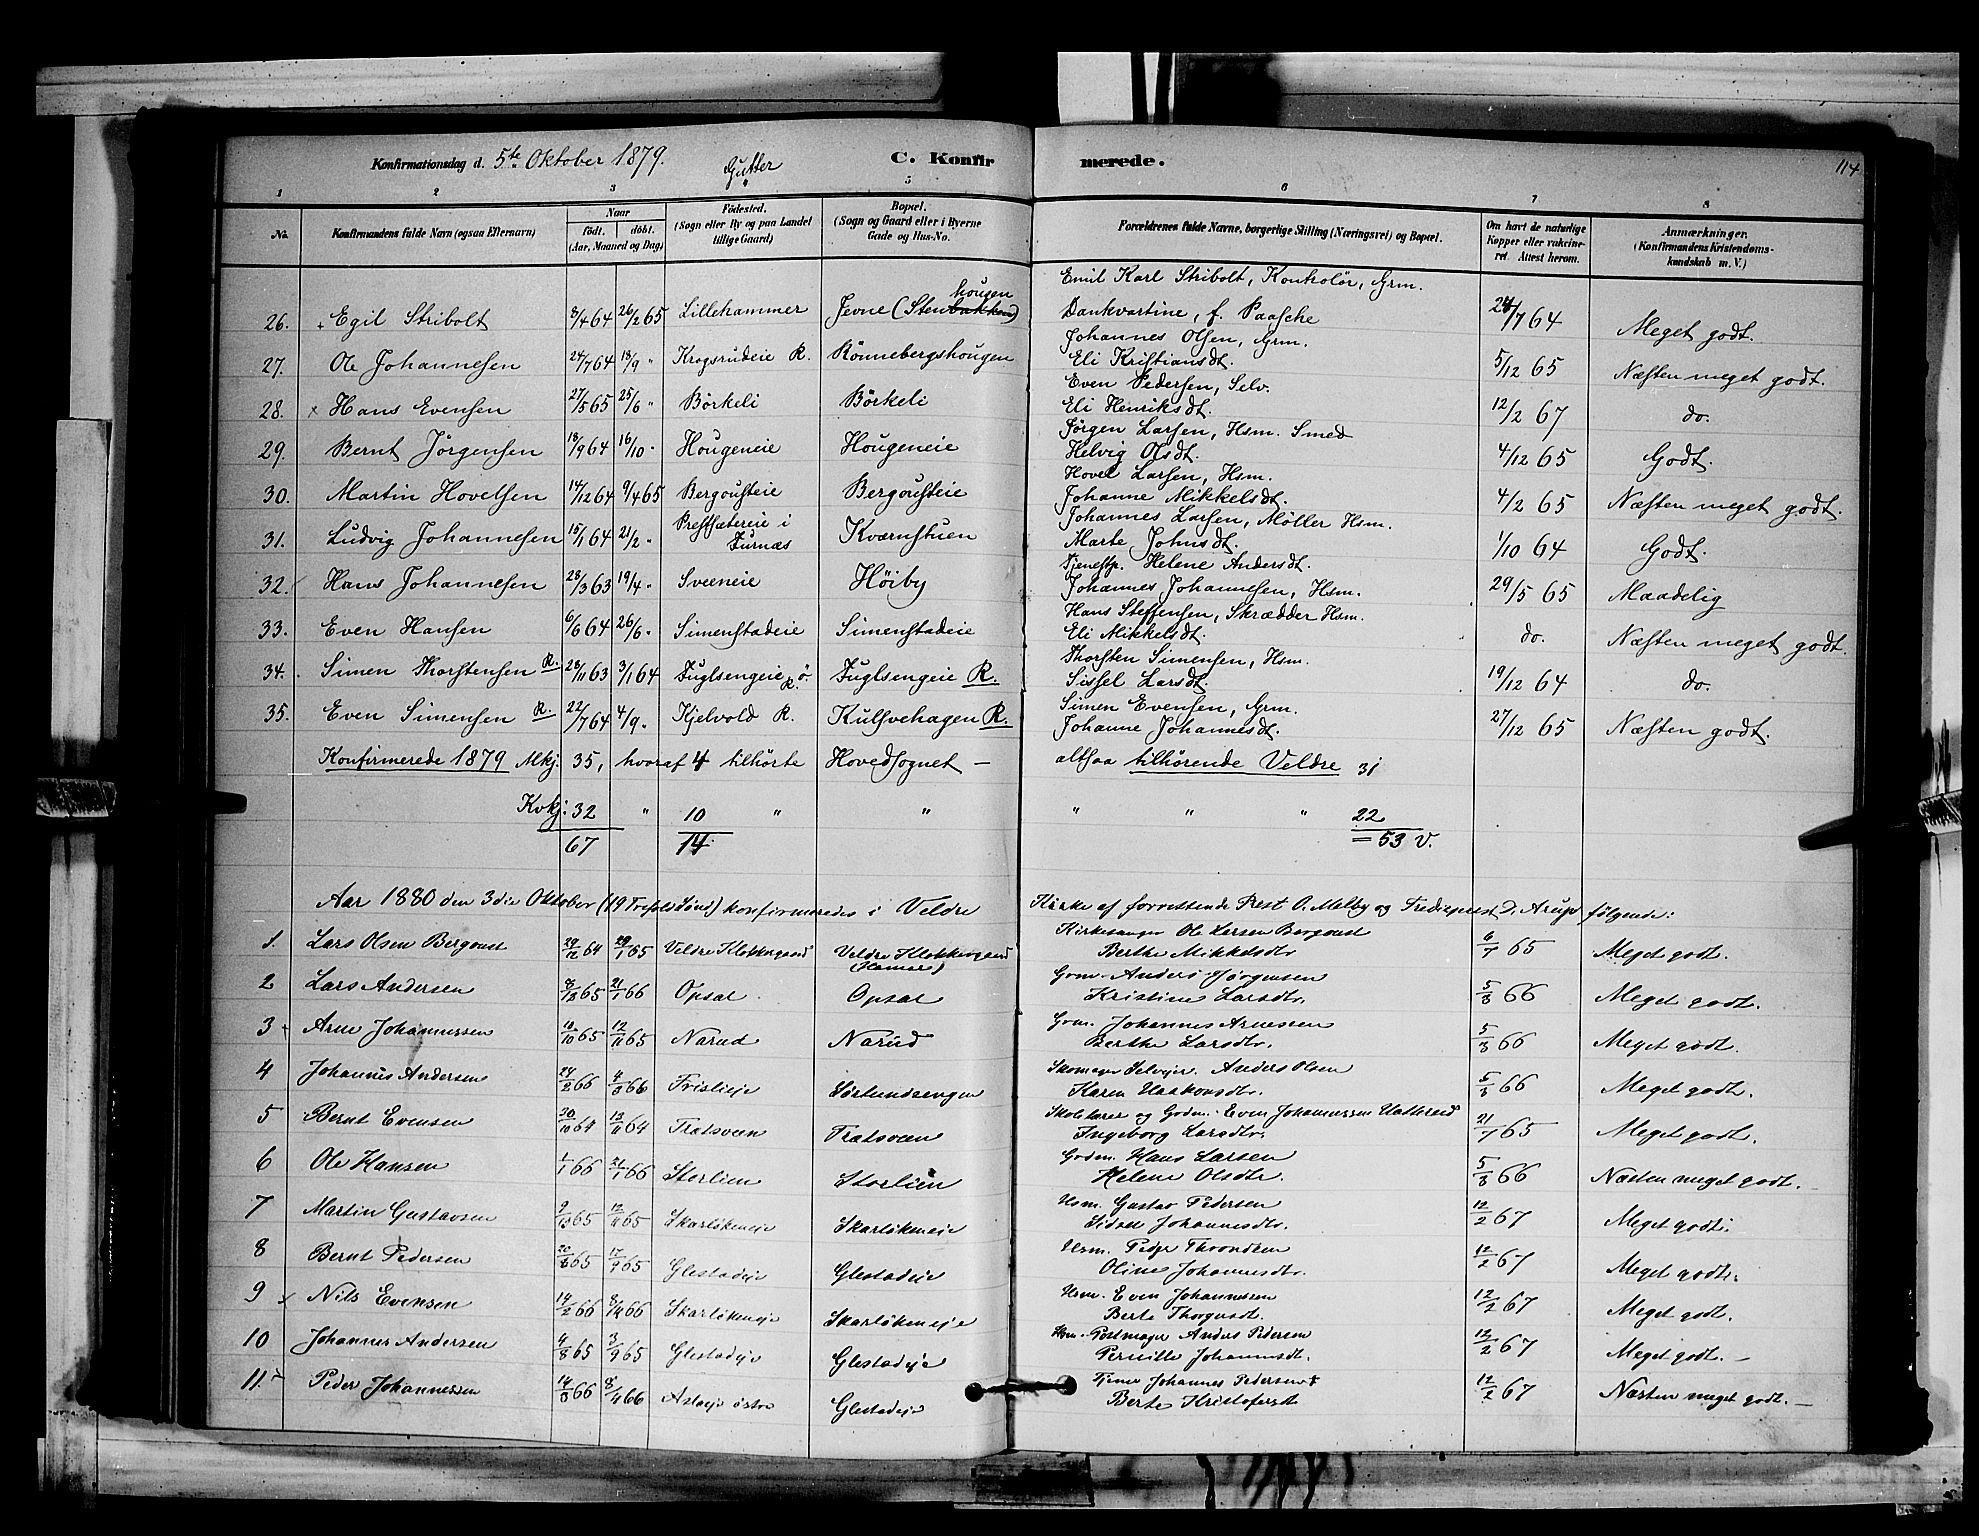 Konfirmationsdag d. 5te Oktober 1879. Gutter C. Konfir merede. 114
1 2 3 5 6 7 8
No. Konfirmandens fulde Navn (ogsaa Efternavn) Naar født. døbt. (Aar, Maaned og Dag) Fødested. (Sogn eller By og paa Landet tillige Gaard) Bopæl. (Sogn og Gaard eller i Byerne Gade og Hus-No. Forældrenes fulde Navne, borgerlige Stilling (Næringsvei) og Bopæl. Om havt de naturlige Kopper eller vakcineret. Attest herom. Anmærkninger. (Konfirmandens Kristendomskundskab m. V.)
26. Egil Stribolt 8/4 64 26/2 65 Lillehammer Jevne (Stenbakken) hougen Emil Karl Stribolt, Kontrolør, Grm. Dankvartine, f. Paasche 24/7 64 Meget godt.
27. Ole Johannesen 24/7 64 18/9 " Krogsrudeie R. Rönnebergshougen Johannes Olsen, Grm. Eli Kristiansdt. 5/12 65 Næsten meget godt.
28. x Hans Evensen 27/5 65 25/6 " Börkeli Börkeli Even Pedersen, Selv. Eli Henriksdt. 12/2 67 do.
29. Bernt Jörgensen 18/9 64 16/10 " Hougeneie Hougeneie Jörgen Larsen, Hsm. Smed Helvig Olsdt. 4/12 65 Godt.
30. Martin Hovelsen 14/12 64 9/4 65 Bergousteie Bergousteie Hovel Larsen, Hsm. Johanne Mikkelsdt. 4/2 65 Næsten meget godt.
31. Ludvig Johannesen 15/1 64 21/2 " Prestsætereie i Furnæs Kværnstuen Johannes Larsen, Möller Hsm. Marte Johnsdt. 1/10 64 Godt.
32. Hans Johannesen 28/3 63 19/4 " Sveeneie Höiby Tjenestp. Helene Andersdt. Johannes Johannesen, Hsm. 29/5 65 Maadelig
33. Even Hansen 6/6 64 26/6 " Simenstadeie Simenstadeie Hans Steffensen, Skrædder Hsm. Eli Mikkelsdt. do. Næsten meget godt.
34. Simen Thorstensen R. 28/11 63 3/1 64 Fuglsengeie ö. R. Fuglsengeie R. Thorsten Simensen, Hsm. Sissel Larsdt. 19/12 64 do.
35. Even Simensen R. 22/7 64 4/9 " Kjelvold R. Kulsvehagen R. Simen Evensen, Grm. Johanne Johannesdt. 27/12 65 Næsten godt.
Konfirmerede 1879 Mkj. 35, hvoraf 4 tilhørte Hovedsognet — altsaa tilhørende Veldre 31
Kvkj: 32 " 10 " " " " " 22
67 14 = 53 V.
Aar 1880 den 3die Oktober (19 Trefold. Sønd) konfirmeredes i Veldre Kirke af forrettende Prest O. Melby og D. Arup følgende:
1. Lars Olsen Bergoust 29/12 64 29/1 65 Veldre Klokkergaard Veldre Klokkergaard (Hamar) Kirkesanger Ole Larsen Bergoust Berthe Mikkelsdtr 6/7 65 Meget godt.
2 Lars Andersen 8/12 65 21/1 66 Opsal Opsal Grm. Anders Jørgensen Kristine Larsdtr. 5/8 66 Meget godt.
3 Arne Johannessen 10/10 65 12/11 65 Narud Narud Grm. Johannes Arnessen Berthe Larsdtr. 5/8 66 Meget godt.
4 Johannes Andersen 24/2 66 4/3 66 Frislieje Sørlundsengen Skomager Selvejer. Anders Olsen Karen Haakonsdtr. 5/8 66 Meget godt.
5 Bernt Evensen 20/10 64 13/11 64 Tratsveen Tratsveen Skolelærer og Grdm. Even Johannessen Ingeborg Larsdtr. 21/7 65 Meget godt.
6 Ole Hansen 1/1 66 21/1 66 Storlien Storlien Grdm. Hans Larsen Helene Olsdtr. 5/8 66 Næsten meget godt.
7 Martin Gustavsen 9/10 65 12/11 65 Skarløkeneje Skarløkeneje Hsm. Gustav Pedersen Johannesdtr. 12/2 67 Meget godt.
8 Bernt Pedersen 20/8 65 17/9 65 Glestadeje Glestadeje Hsm. Peder Throndsen Oline Johannesdtr. 12/2 67 Meget godt.
9 x Nils Evensen 14/2 66 8/4 66 Skarløkeneje Skarløkeneje Hsm. Even Johannesen Berte Thorgersdt. 12/2 67 Meget godt.
10 Johannes Andersen 4/8 65 3/9 65 Glestadeje Glestadeje Hsm. Anders Pedersen Pernille Johannesdt. 12/2 67 Meget godt. —
11. Peder Johannessen 14/3 66 8/4 66 østre Glestadeje Tjener Johannes Pedersen Berte Kristofersdt 12/2 67 Næsten meget godt. —